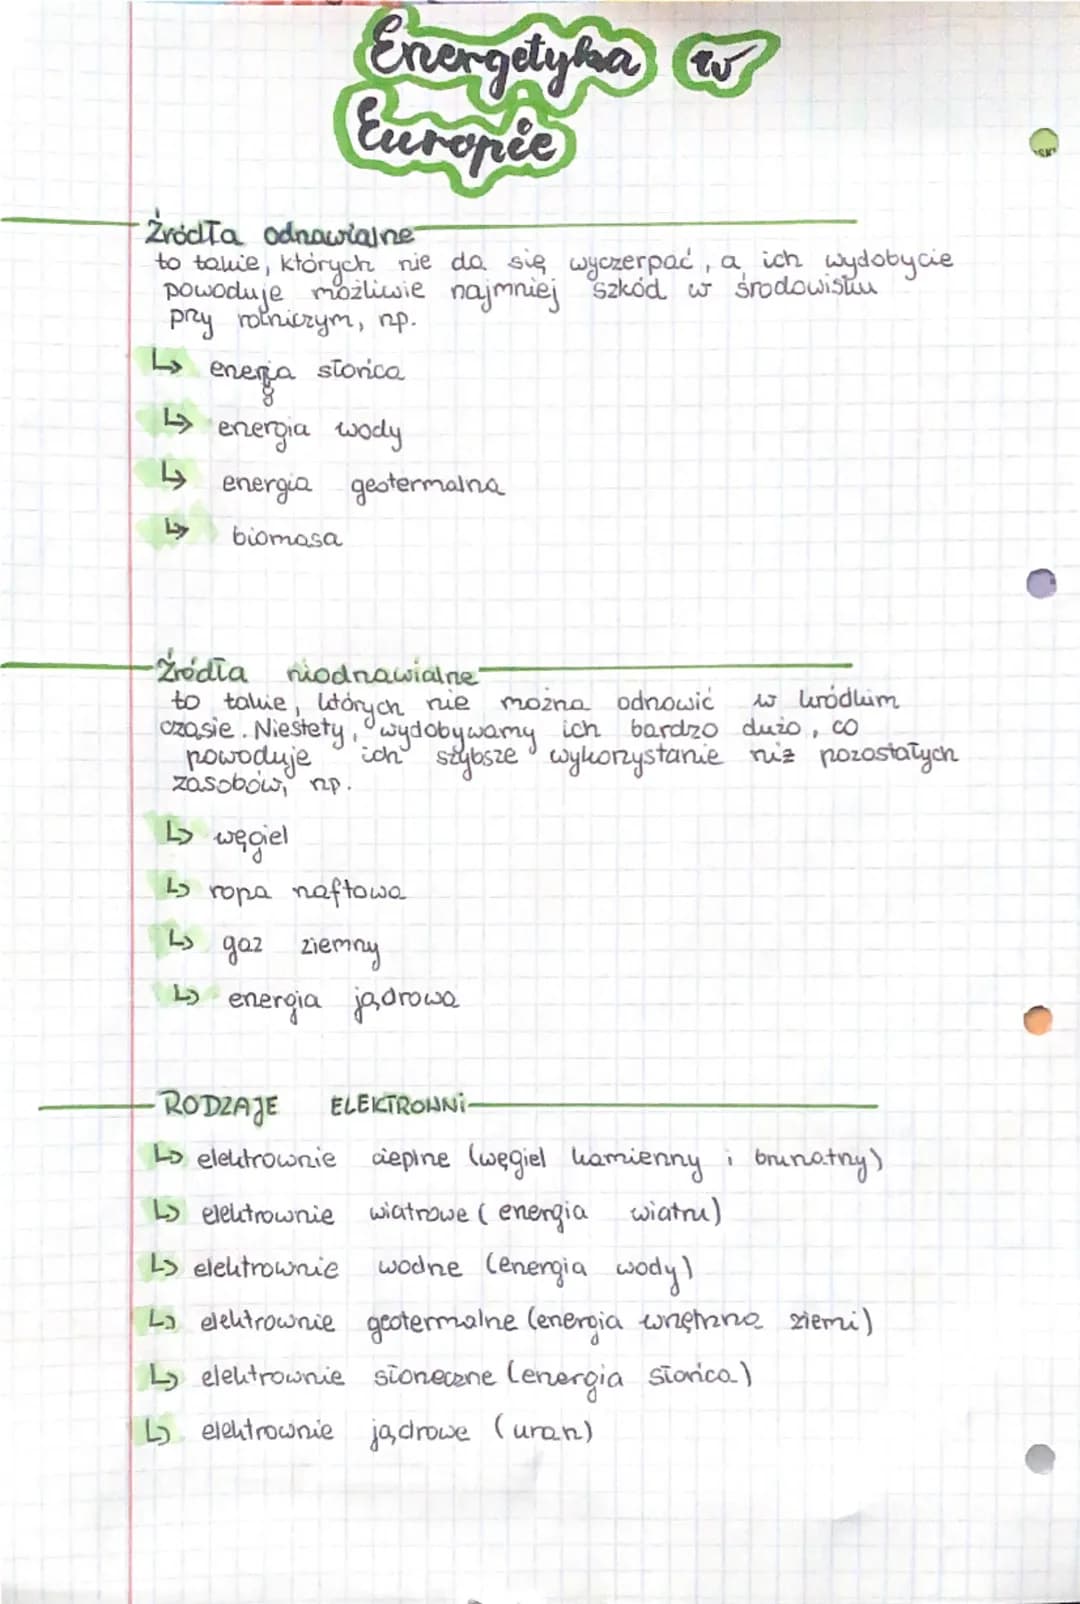 Energetyka w
Europie
Źródła odnawialne
to takie, których nie da się wyczerpać, a ich wydobycie
powoduje możliwie najmniej szkód w środowisku
przy rolniczym, np.
↳ energia słońca
↳ energia wody
↳ energia geotermalna
↳ biomasa
Źródła niodnawialne
to takie, których nie można odnowić w kródkim
czasie. Niestety, wydobywamy ich bardzo dużo, co
powoduje ich szybsze wykorzystanie niż pozostałych
zasobów, np.
↳ węgiel
↳ ropa naftowa
↳ gaz ziemny
↳ energia jądrowa
RODZAJE ELEKTROWNI
↳ elektrownie cieplne (węgiel kamienny i brunatny)
↳ elektrownie wiatrowe (energia wiatru)
↳ elektrownie wodne (energia wody)
↳ elektrownie geotermalne (energia wnętrzna ziemi)
↳ elektrownie słoneczne (energia słońca)
↳ elektrownie jądrowe (uran)